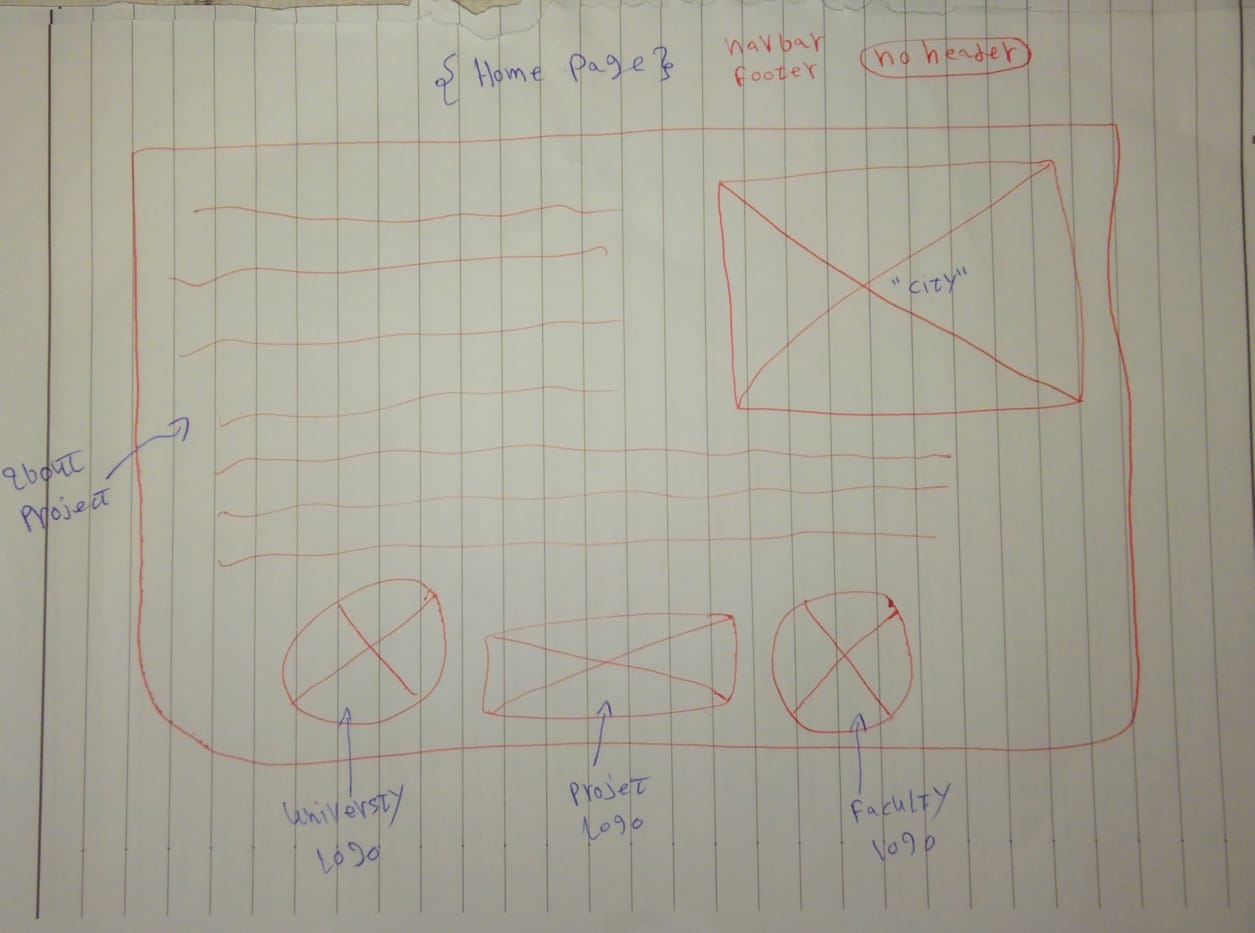 { Home page }
navbar
footer
no header
"city"
about
project
universty
logo
projet
logo
faculty
logo